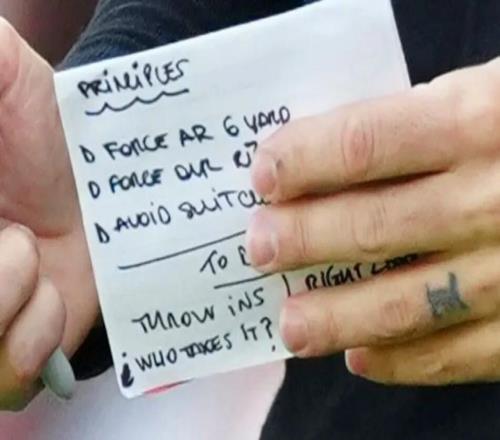 PRINIPLES
D FORCE AR 6 YARD
D FORCE OUR
D AVOID SWITCH
TO
THROW INS | RIGHT
¿WHO TAKES IT?